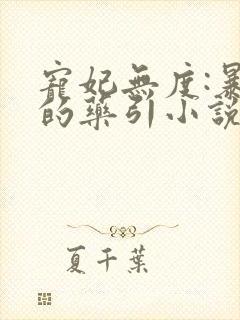 寵妃無度:暴
的藥引小說
夏千葉